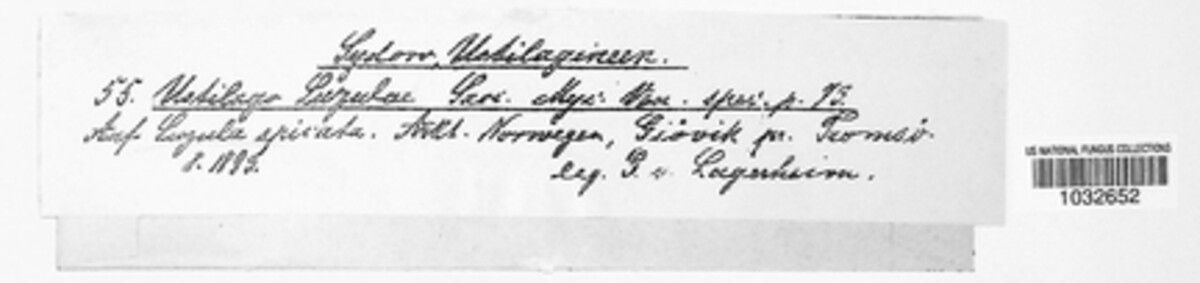 Sydow, Ustilagineen.
55. Ustilago Luzulae Sacc. Myc. Ven. spec. p. 73.
Auf Luzula spicata. Arkt. Norwegen, Giövik pr. Tromsö.
8. 1893.
leg. G. v. Lagerheim.
US NATIONAL FUNGUS COLLECTIONS
1032652